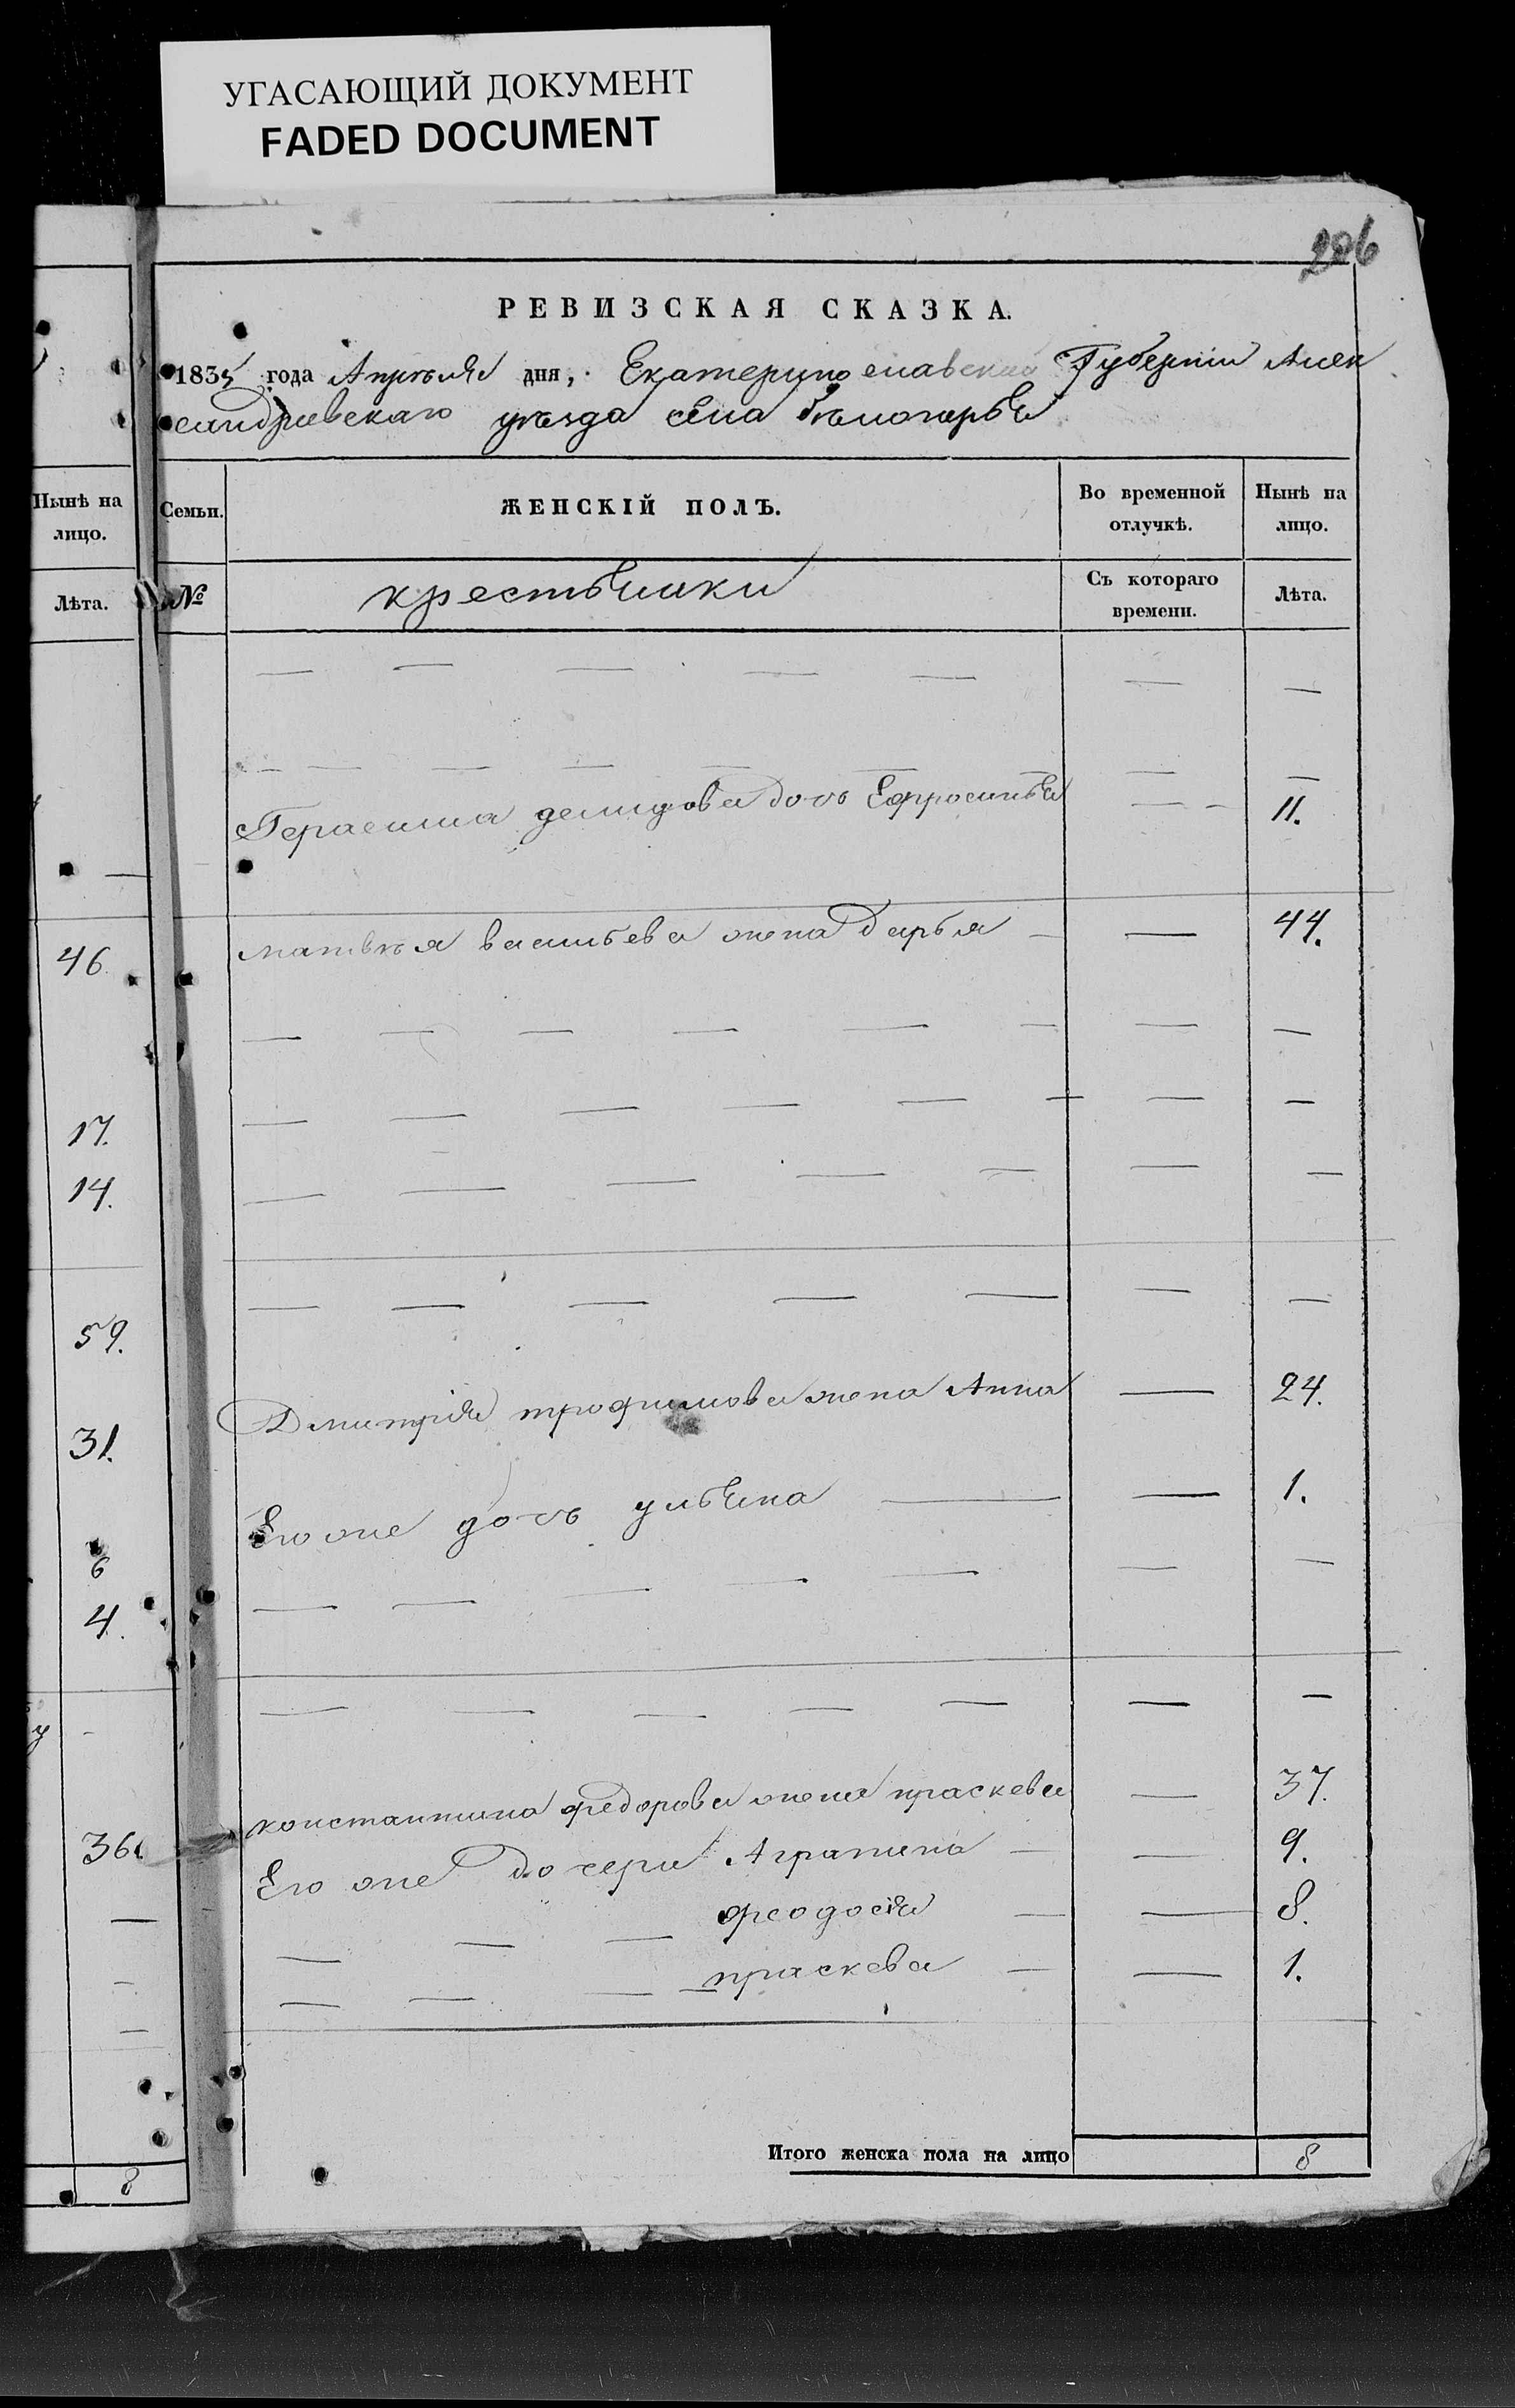 УГАСАЮЩИЙ ДОКУМЕНТ
FADED DOCUMENT
РЕВИЗСКАЯ СКАЗКА.
1835 года Апрѣля дня, Екатеринославской Губерніи Алек
сандровскаго уѣзда села Бѣлогорья
Нынѣ на лицо.
Лѣта.
46
17.
14.
59.
31.
6
4.
36.
8
Семьи. ЖЕНСКІЙ ПОЛЪ. Во временной отлучкѣ. Нынѣ на лицо.
№ крестьянки Съ котораго времени. Лѣта.
Герасима демидова дочь Ефросинья — 11.
матвѣя васильева жена дарья — 44.
Дмитрія трофимова жена Анна — 24.
Его же дочь ульяна — 1.
константина федорова жена праскева — 37.
Его же дочери Аграпина — 9.
феодосія — 8.
праскева — 1.
Итого женска пола на лицо 8